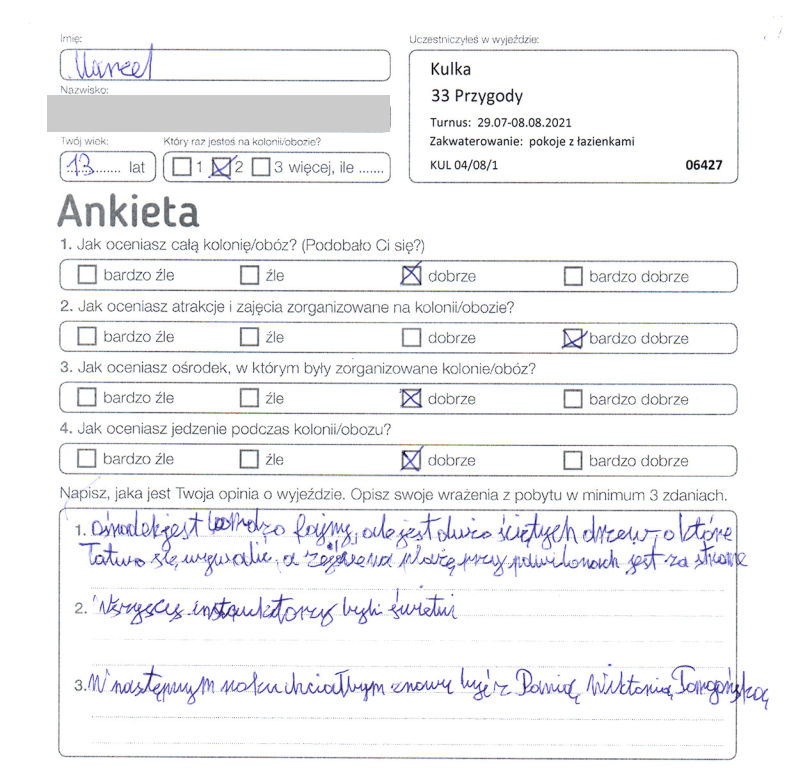 Imię:
Marcel
Nazwisko:
Twój wiek:
13 lat
Który raz jesteś na kolonii/obozie?
1 2 3 więcej, ile .......
Uczestniczyłeś w wyjeździe:
Kulka
33 Przygody
Turnus: 29.07-08.08.2021
Zakwaterowanie: pokoje z łazienkami
KUL 04/08/1 06427
Ankieta
1. Jak oceniasz całą kolonię/obóz? (Podobało Ci się?)
bardzo źle źle dobrze bardzo dobrze
2. Jak oceniasz atrakcje i zajęcia zorganizowane na kolonii/obozie?
bardzo źle źle dobrze bardzo dobrze
3. Jak oceniasz ośrodek, w którym były zorganizowane kolonie/obóz?
bardzo źle źle dobrze bardzo dobrze
4. Jak oceniasz jedzenie podczas kolonii/obozu?
bardzo źle źle dobrze bardzo dobrze
Napisz, jaka jest Twoja opinia o wyjeździe. Opisz swoje wrażenia z pobytu w minimum 3 zdaniach.
1. Ośrodek jest bardzo fajny, ale jest dużo ściętych drzew, o które
łatwo się wywalić, a na plażę przy pawilonach jest za strome
2. Wszyscy instruktorzy byli świetni
3. W następnym roku chciałbym znowu być z Panią Wiktorią